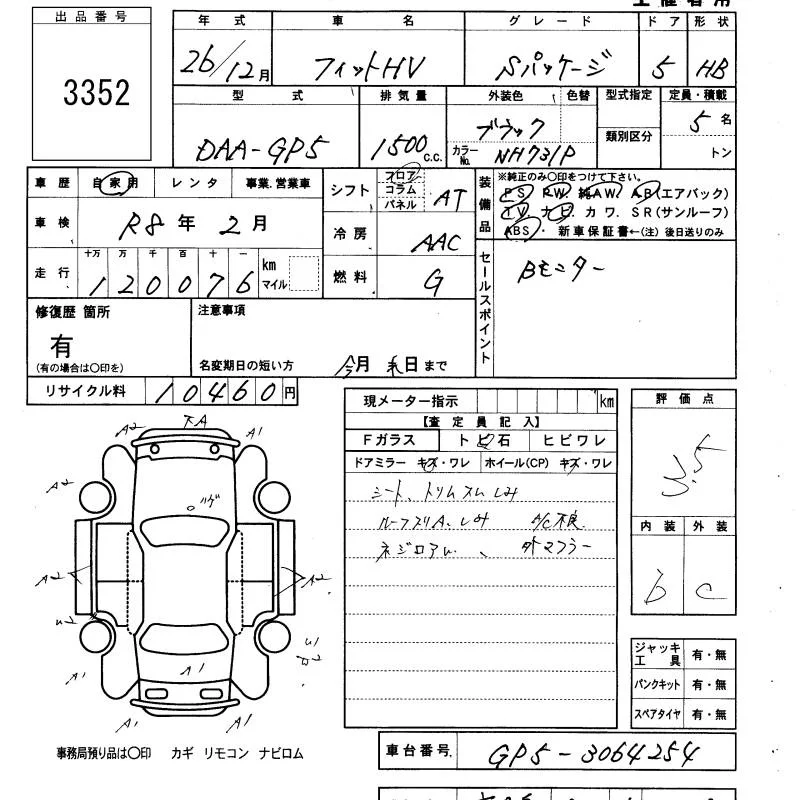 出品番号
3352
年式 車名 グレード ドア 形状
26/12月 フィットHV Sパッケージ 5 HB
型式 排気量 外装色 色替 型式指定 定員・積載
DAA-GP5 1500c.c. ブラック カラーNo. NH731P 類別区分 5名 トン
車歴 自家用 レンタ 事業.営業車
車検 R8年2月
走行 十万 万 千 百 十 一
120076 km マイル
シフト フロア コラム パネル AT
冷房 AAC
燃料 G
装備品 ※純正のみ〇印をつけて下さい。
PS PW 純AW. AB(エアバック)
TV. ナビ. カワ. SR(サンルーフ)
ABS・ 新車保証書←(注) 後日送りのみ
セールスポイント Bモニター
修復歴 箇所 有 (有の場合は〇印を)
注意事項
名変期日の短い方 今月 末日 まで
リサイクル料 10460円
現メーター指示 km
【査定員記入】
Fガラス トビ石 ヒビワレ
ドアミラー キズ・ワレ ホイール(CP) キズ・ワレ
シート、トリムスムしみ
ルーフスリA、しみ A/C不良
ネジロアム、 外マフラー
評価点
3.5
内装 外装
b c
ジャッキ工具 有・無
パンクキット 有・無
スペアタイヤ 有・無
A2 下A A1
A2 ツゲ
A2 A2
A1 A1
A1 A1
事務局預り品は〇印 カギ リモコン ナビロム
車台番号 GP5-3064254